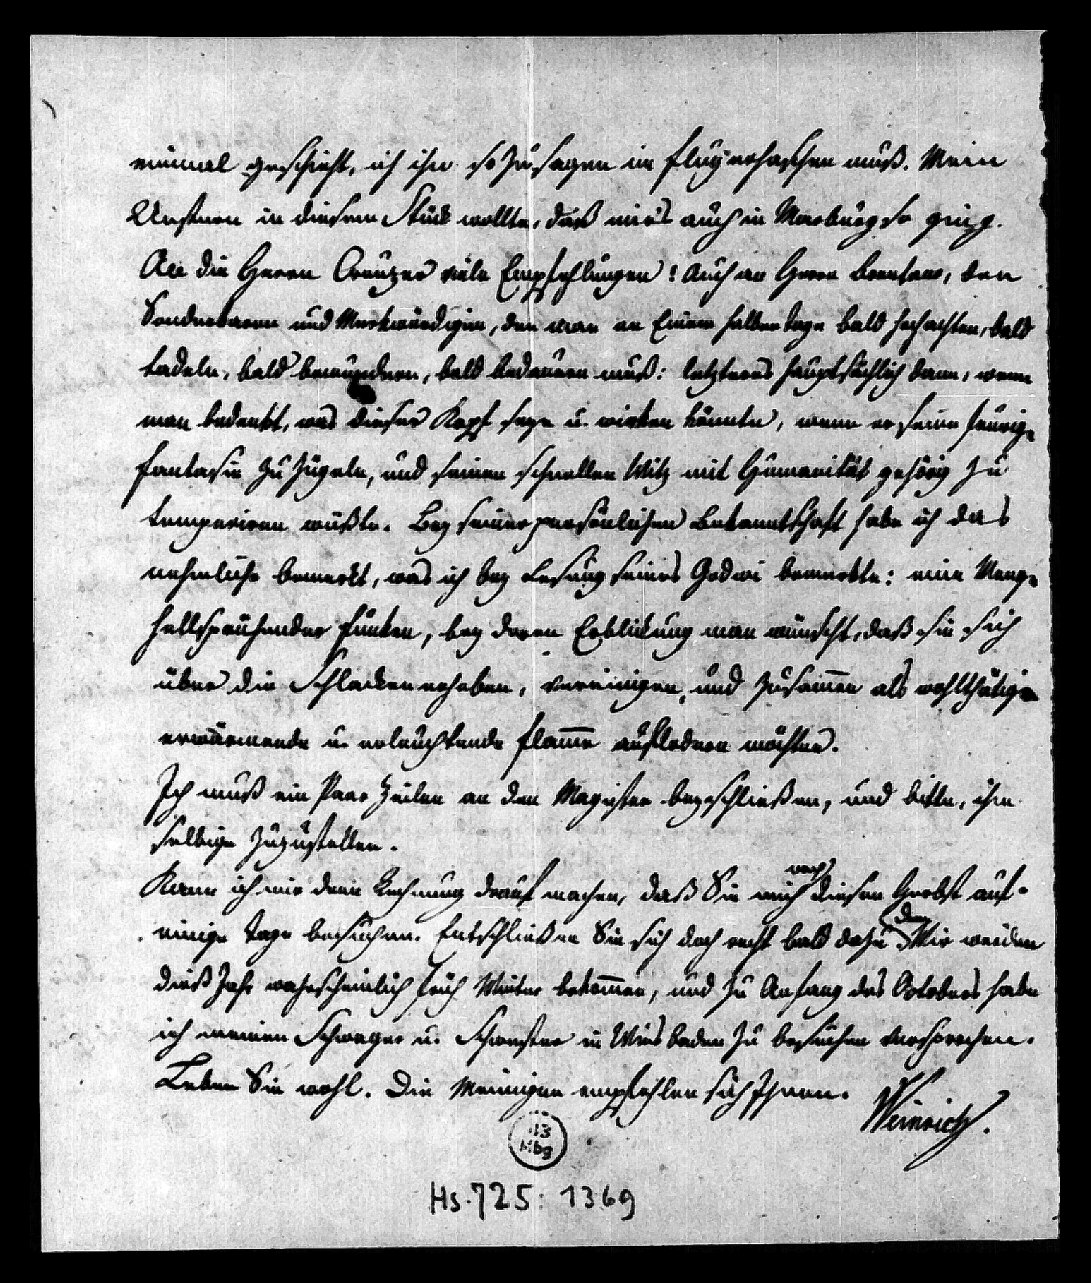 einmal geschieht, ich ihn so zu sagen im Flug erhaschen muß. Mein
Unstern in diesem Stück wollte, daß mir's auch in Marburg so ging.
An die Herrn Creuzer viele Empfehlungen! Auch an Herrn Brentano, den
Sonderbaren und Merkwürdigen, den man an Einem halben Tage bald hochachten, bald
tadeln, bald bewundern, bald bedauern muß: letzteres hauptsächlich dann, wenn
man bedenkt, was dieser Kopf seyn u. wirken könnte, wenn er seine feurige
Fantasie zu zügeln, und seinen schnellen Witz mit Humanität gehörig zu
temperiren wüßte. Bey seiner persönlichen Bekanntschaft habe ich das
nehmliche bemerkt, was ich bey Lesung seines Godwi bemerkte: eine Menge
hellsprühender Funken, bey deren Erblickung man wünscht, daß sie sich
über die Schlacken erheben, vereinigen, und zusammen als wohlthätige
erwärmende u. erleuchtende Flamme auflodern möchten.
Ich muß ein Paar Zeilen an den Magister beyschließen, und bitte, ihm
selbige zuzustellen.
Kann ich mir denn Rechnung drauf machen, daß Sie mich noch diesen Herbst auf
einige Tage besuchen. Entschließen Sie sich doch recht bald dazu, denn Wir werden
dieß Jahr wahrscheinlich früh Winter bekommen, und zu Anfang des Octobers habe
ich meinen Schwager u. Schwester in Wiesbaden zu besuchen versprochen.
Leben Sie wohl. Die Meinigen empfehlen sich Ihnen.
Weinrich.
Hs. 725: 1369